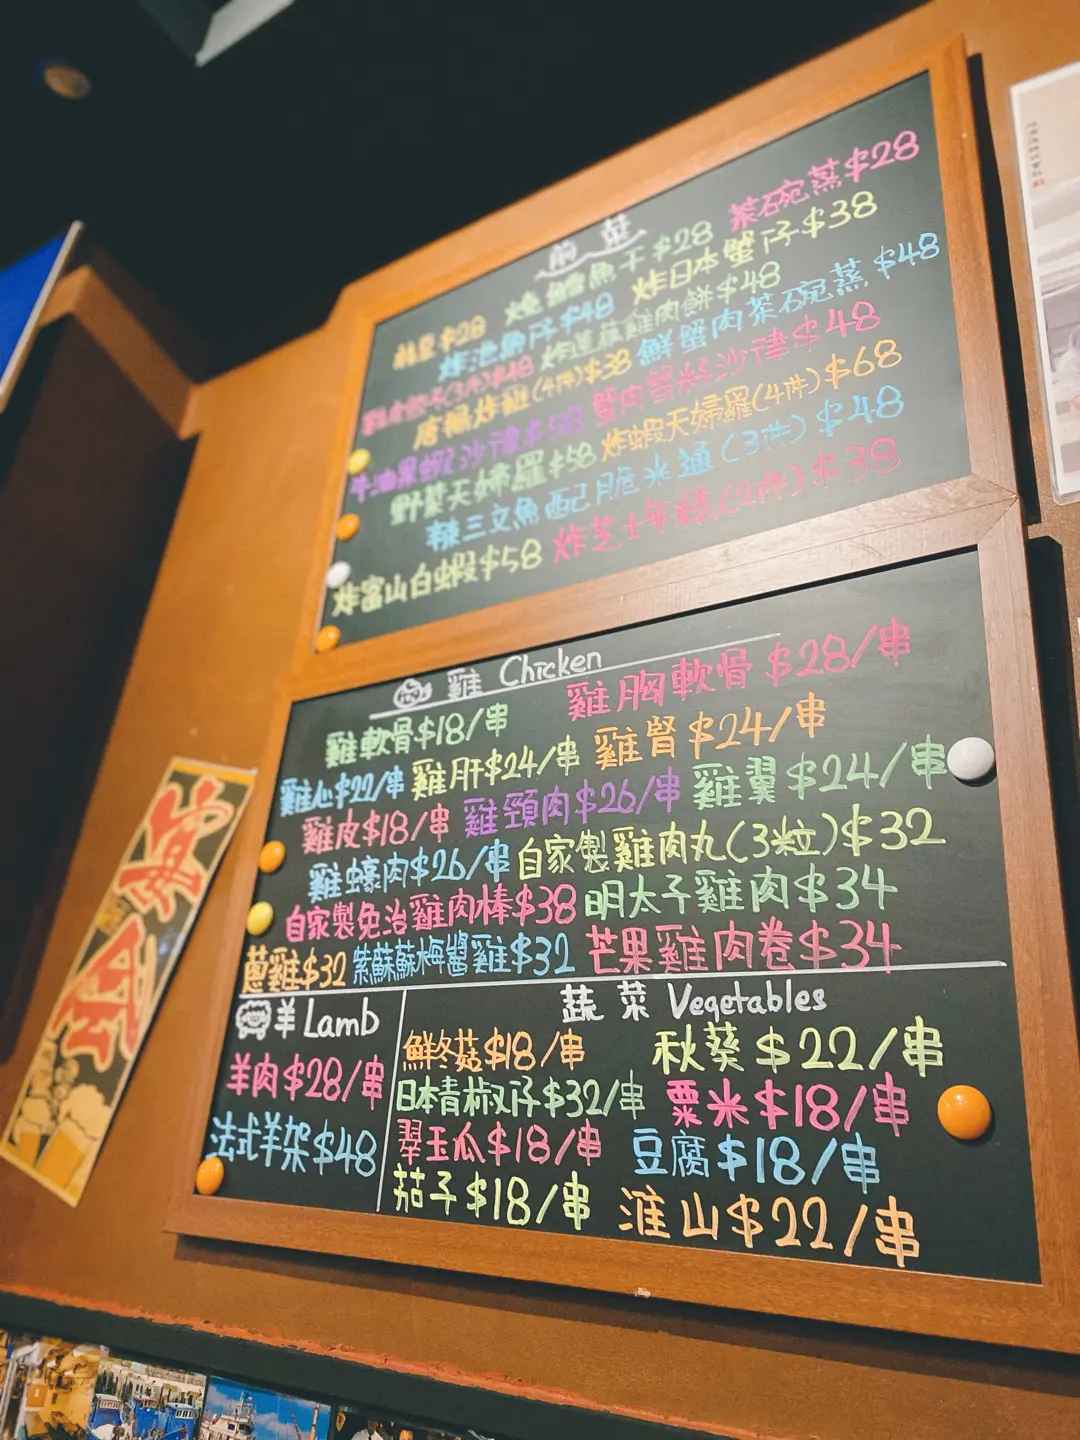 前菜
枝豆$28 燒鱈魚干$28 茶碗蒸$28
炸池魚仔$48 炸日本蟹仔$38
(3件)$48 炸蓮藕雞肉餅$48
唐揚炸雞(4件)$38 鮮蟹肉茶碗蒸$48
牛油果蝦沙律$58 蟹肉蟹籽沙律$48
野菜天婦羅$58 炸蝦天婦羅(4件)$68
辣三文魚配脆米通(3件)$48
炸富山白蝦$58 炸芝士年糕(2件)$38
雞 Chicken
雞軟骨$18/串 雞胸軟骨$28/串
雞心$22/串 雞肝$24/串 雞腎$24/串
雞皮$18/串 雞頸肉$26/串 雞翼$24/串
雞蠔肉$26/串 自家製雞肉丸(3粒)$32
自家製免治雞肉棒$38 明太子雞肉$34
蔥雞$32 紫蘇蘇梅醬雞$32 芒果雞肉卷$34
羊 Lamb
羊肉$28/串
法式羊架$48
蔬菜 Vegetables
鮮冬菇$18/串 秋葵$22/串
日本青椒仔$32/串 粟米$18/串
翠玉瓜$18/串 豆腐$18/串
茄子$18/串 淮山$22/串
宴会